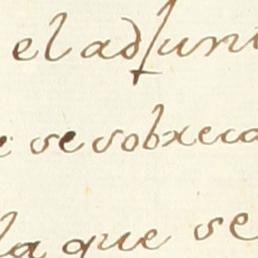 el adjun
se sobxeca
la que se